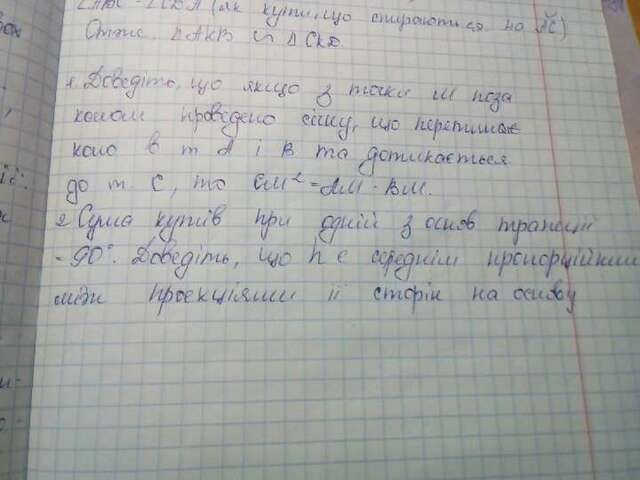 (як кути, що спираються на AC)
Отже △AKB ∾ △CKD.
1. Доведіть, що якщо з точки М поза
колом проведено січну, що перетинає
коло в т A і B та дотикається
до т. C, то CM² = AM · BM.
2 Сума кутів при одній з основ трапеції
= 90°. Доведіть, що h є середнім пропорційним
між проекціями її сторін на основу